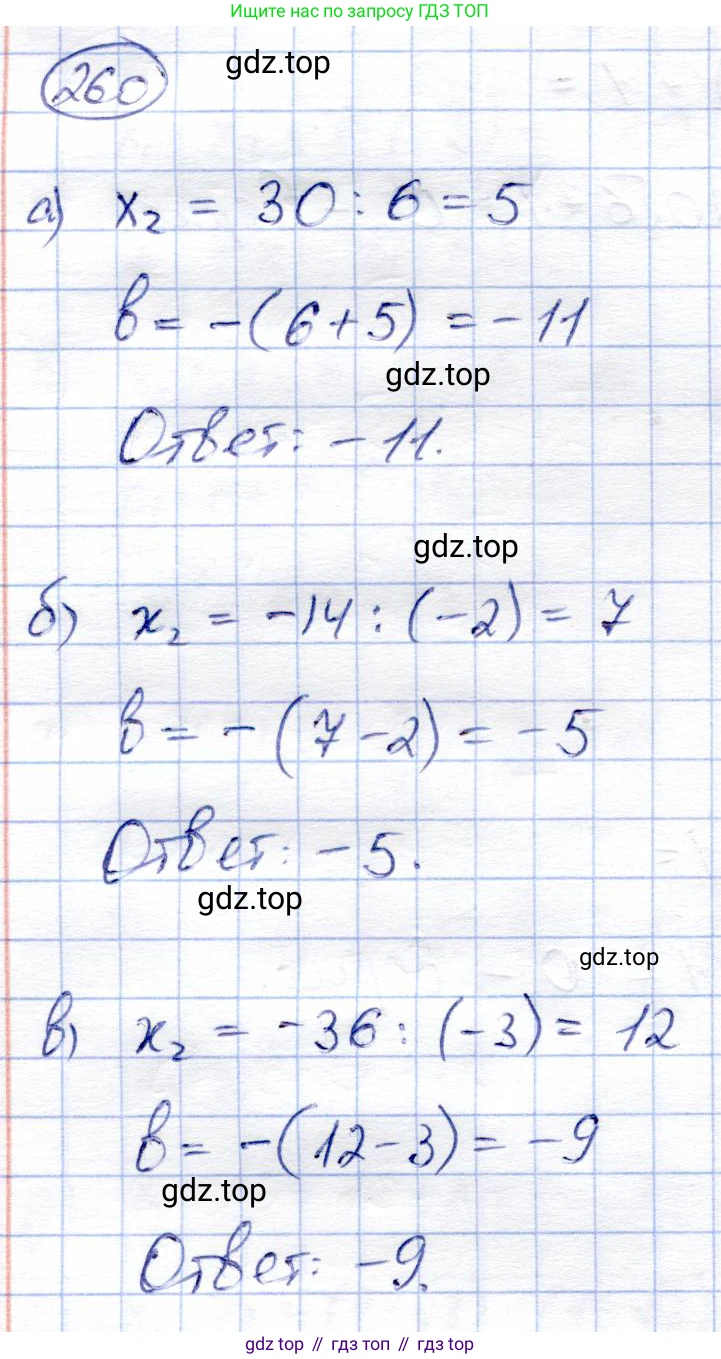 Ищите нас по запросу ГДЗ ТОП
260
gdz.top
а) x₂ = 30 : 6 = 5
в = -(6+5) = -11
gdz.top
Ответ: -11.
gdz.top
б) x₂ = -14 : (-2) = 7
в = -(7-2) = -5
Ответ: -5.
gdz.top
gdz.top
в) x₂ = -36 : (-3) = 12
в = -(12-3) = -9
gdz.top
Ответ: -9.
gdz top // гдз топ // gdz.top